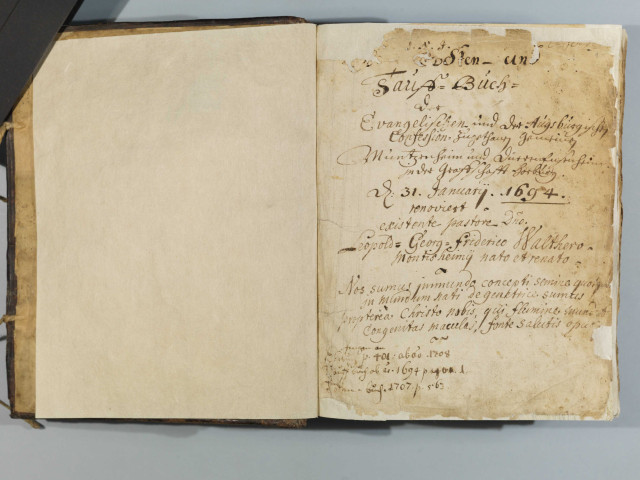 Todten- und
Tauff-Buch-
der
Evangelischen und der Augsburgischen
Confession Zugethanen Gemeine
Müntzenheim und Dürrenentzheim
in der Graffschafft Horburg.
31. Januarij. 1694.
renoviert
existente pastore Dno.
Leopold-Georg-Friderico Walthero
Montisbeimij nato et renato
Nos sumus immundo concepti semine
in mundum nati degenitrice sumus
propterea Christo nobis, qui flumine
Congenitas maculas, fonte salutis
p. 401. ab ao. 1708
1694 p. 1.
buch. 1707 p. 63